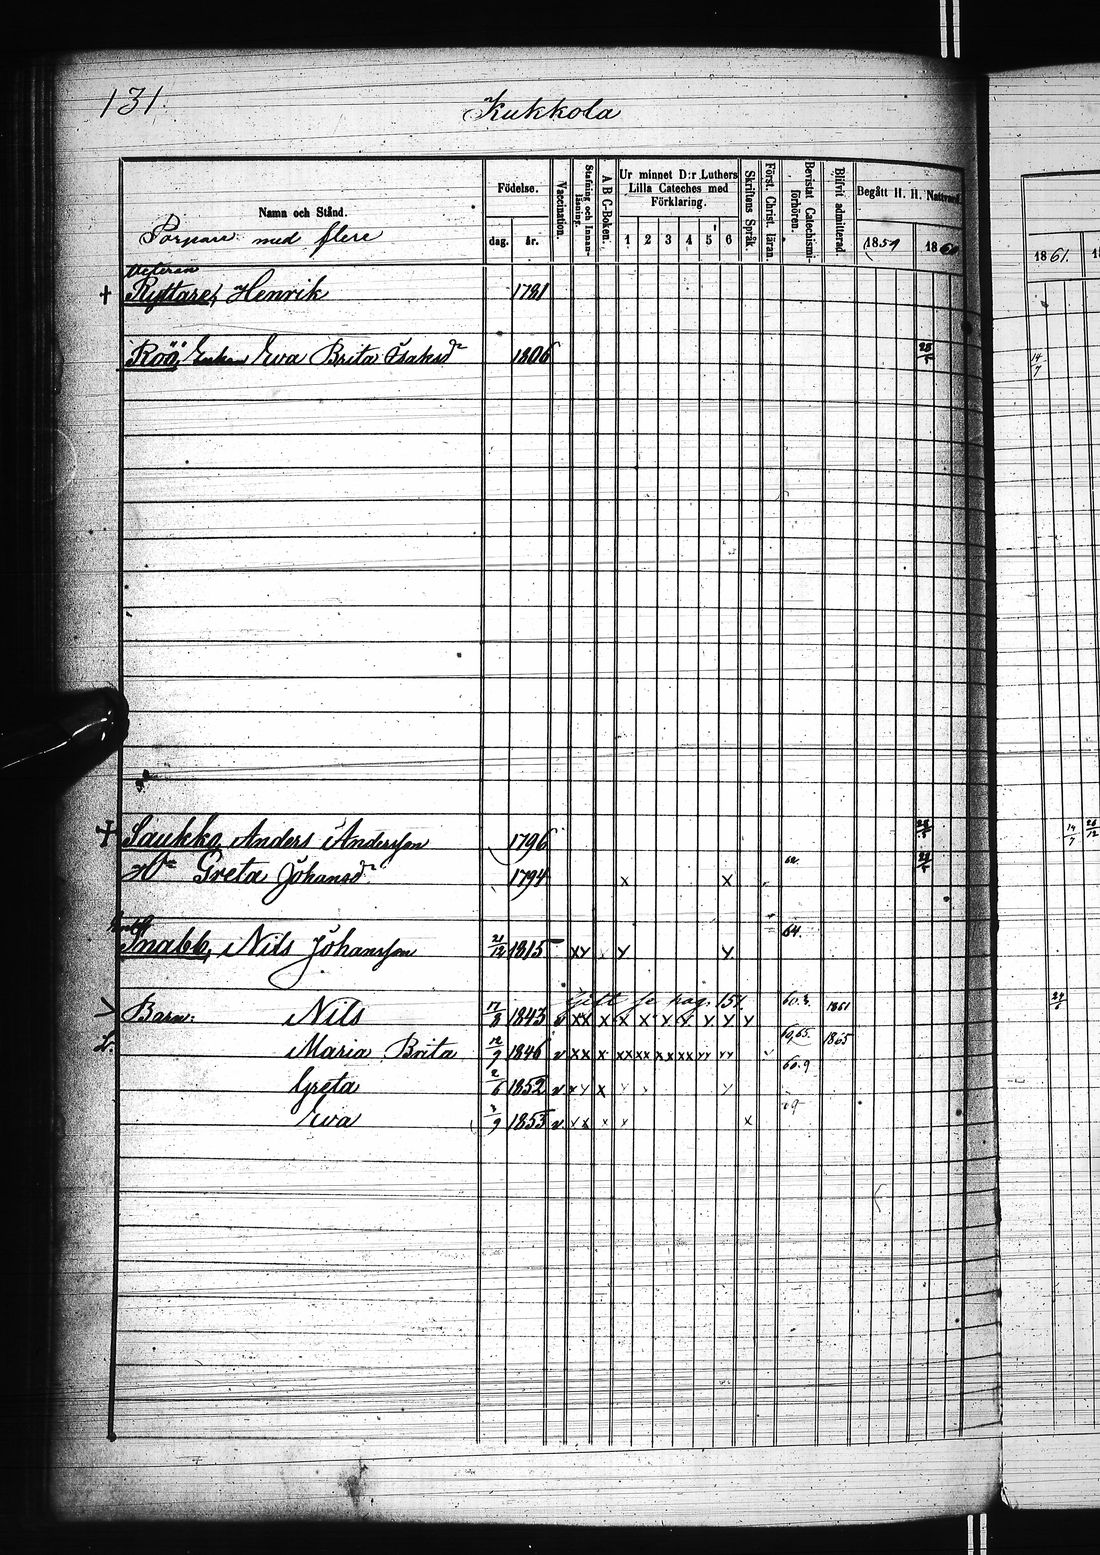 131.
Kukkola
Namn och Stånd.
Födelse.
dag. år.
Vaccination.
Stafning och Innanläsning.
A B C-Boken.
Ur minnet D:r Luthers Lilla Cateches med Förklaring.
1 2 3 4 5 6
Skriftens Språk.
Först. Christ. läran.
Bevistat Catechismi-förhören.
Blifvit admitterad.
Begått H. H. Nattvard.
1859 1860
1861.
med flere
Veteran
† Ryttare, Henrik 1781
Röö, Enkan Ewa Brita Isaksdr 1806 14/7
† Saukko, Anders Andersson 1796 14/7
Hu Greta Johansdr 1794 x x
Snabb, Nils Johansson 21/12 1815 xy y y 64.
Gift se pag. 151
Barn: Nils 17/8 1843 v xx x x x y y y y y 60.3. 1861
Maria Brita 12/9 1846 v xx x xx xx xx xx yy yy 60,65. 1865
Greta 2/6 1852 v xy x y y 60.9
Ewa 3/9 1853 v yx x y x